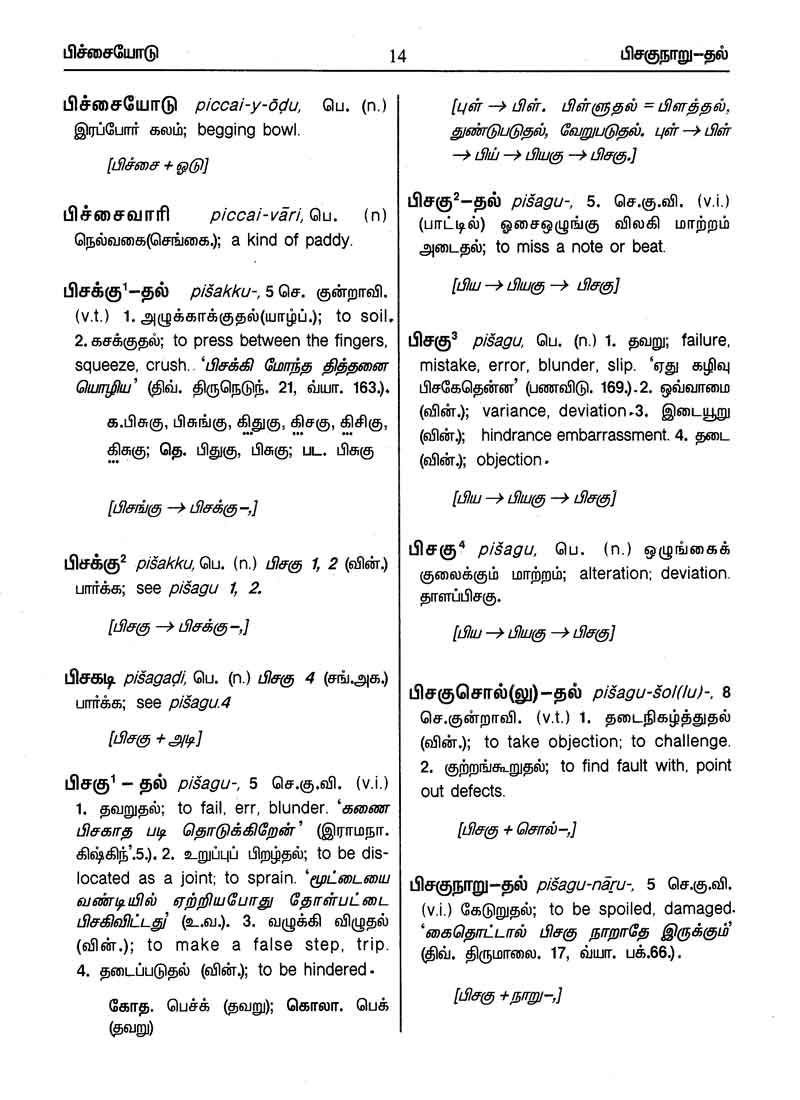 பிச்சையோடு 14 பிசகுநாறு-தல்
பிச்சையோடு piccai-y-ōḍu, பெ. (n.)
இரப்போர் கலம்; begging bowl.
[பிச்சை + ஓடு]
பிச்சைவாரி piccai-vāri, பெ. (n)
நெல்வகை(செங்கை.); a kind of paddy.
பிசக்கு¹-தல் pišakku-, 5 செ. குன்றாவி.
(v.t.) 1. அழுக்காக்குதல்(யாழ்ப்.); to soil.
2. கசக்குதல்; to press between the fingers,
squeeze, crush. ‘பிசக்கி மோந்த தித்தனை
யொழிய’ (திவ். திருநெடுந். 21, வ்யா. 163.).
க.பிசுகு, பிசுங்கு, கிதுகு, கிசகு, கிசிகு,
கிசுகு; தெ. பிதுகு, பிசுகு; பட. பிசுகு
[பிசங்கு → பிசக்கு-,]
பிசக்கு² pišakku, பெ. (n.) பிசகு 1, 2 (வின்.)
பார்க்க; see pišagu 1, 2.
[பிசகு → பிசக்கு-,]
பிசகடி pišagaḍi, பெ. (n.) பிசகு 4 (சங்.அக.)
பார்க்க; see pišagu.4
[பிசகு + அடி]
பிசகு¹ - தல் pišagu-, 5 செ.கு.வி. (v.i.)
1. தவறுதல்; to fail, err, blunder. ‘கணை
பிசகாத படி தொடுக்கிறேன்’ (இராமநா.
கிஷ்கிந்’.5.). 2. உறுப்புப் பிறழ்தல்; to be dis-
located as a joint; to sprain. ‘மூட்டையை
வண்டியில் ஏற்றியபோது தோள்பட்டை
பிசகிவிட்டது’ (உ.வ.). 3. வழுக்கி விழுதல்
(வின்.); to make a false step, trip.
4. தடைப்படுதல் (வின்.); to be hindered.
கோத. பெச்க் (தவறு); கொலா. பெக்
(தவறு)
[புள் → பிள். பிள்ளுதல் = பிளத்தல்,
துண்டுபடுதல், வேறுபடுதல். புள் → பிள்
→ பிய் → பியகு → பிசகு.]
பிசகு²-தல் pišagu-, 5. செ.கு.வி. (v.i.)
(பாட்டில்) ஓசைஒழுங்கு விலகி மாற்றம்
அடைதல்; to miss a note or beat.
[பிய → பியகு → பிசகு]
பிசகு³ pišagu, பெ. (n.) 1. தவறு; failure,
mistake, error, blunder, slip. ‘ஏது கழிவு
பிசகேதென்ன’ (பணவிடு. 169.). 2. ஒவ்வாமை
(வின்.); variance, deviation. 3. இடையூறு
(வின்.); hindrance embarrassment. 4. தடை
(வின்.); objection.
[பிய → பியகு → பிசகு]
பிசகு⁴ pišagu, பெ. (n.) ஒழுங்கைக்
குலைக்கும் மாற்றம்; alteration; deviation.
தாளப்பிசகு.
[பிய → பியகு → பிசகு]
பிசகுசொல்(லு)-தல் pišagu-šol(lu)-, 8
செ.குன்றாவி. (v.t.) 1. தடைநிகழ்த்துதல்
(வின்.); to take objection; to challenge.
2. குற்றங்கூறுதல்; to find fault with, point
out defects.
[பிசகு + சொல்-,]
பிசகுநாறு-தல் pišagu-nāṟu-, 5 செ.கு.வி.
(v.i.) கேடுறுதல்; to be spoiled, damaged.
‘கைதொட்டால் பிசகு நாறாதே இருக்கும்’
(திவ். திருமாலை. 17, வ்யா. பக்.66.).
[பிசகு +நாறு-,]